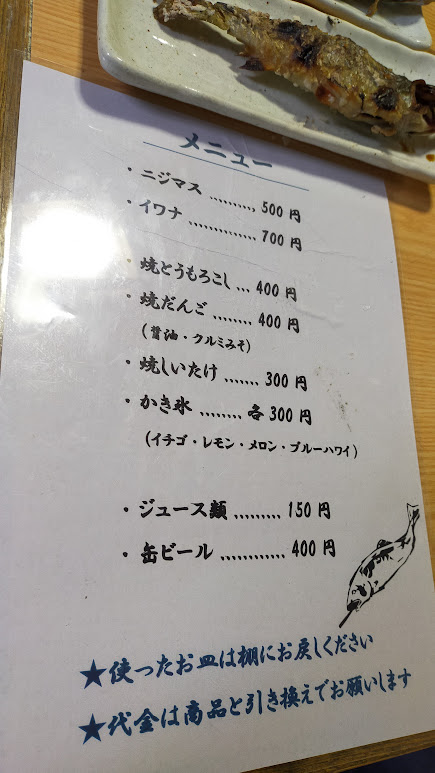 メニュー
・ニジマス .......... 500 円
・イワナ .............. 700 円
・焼とうもろこし ... 400 円
・焼だんご ........ 400 円
(醤油・クルミみそ)
・焼しいたけ ....... 300 円
・かき氷 ........ 各 300 円
(イチゴ・レモン・メロン・ブルーハワイ)
・ジュース類 ......... 150 円
・缶ビール ............ 400 円
★使ったお皿は棚にお戻しください
★代金は商品と引き換えでお願いします